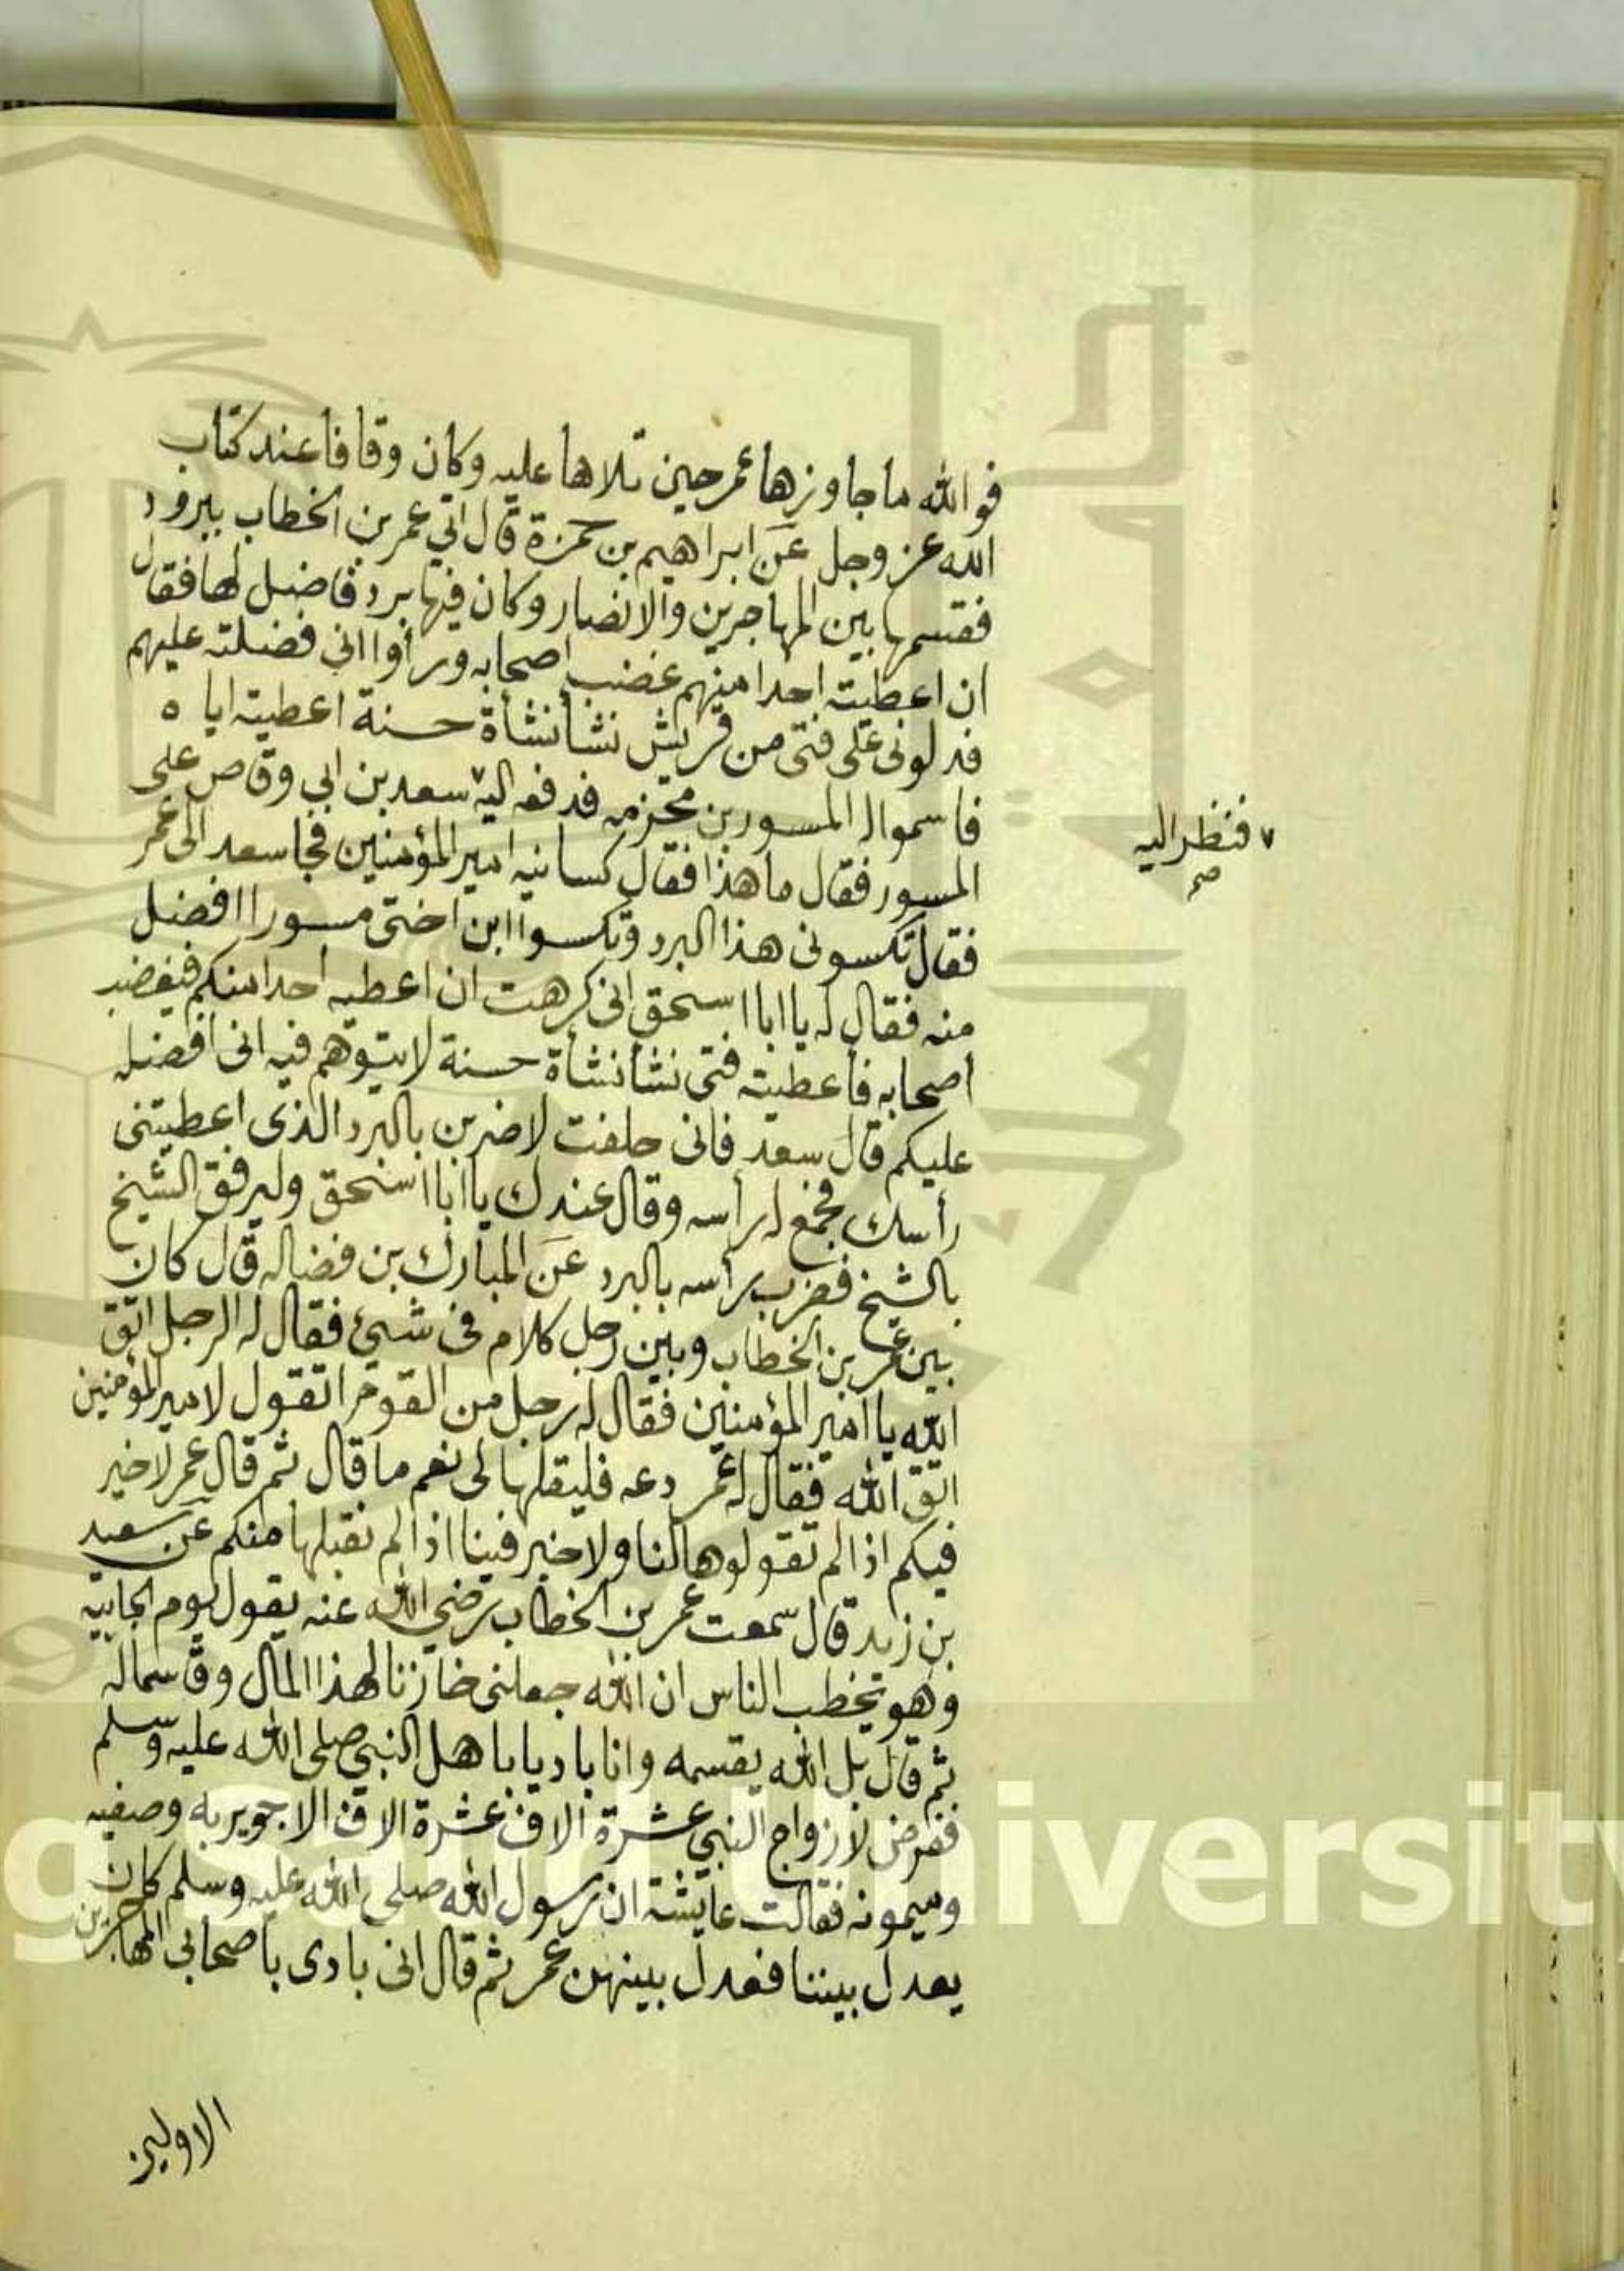 فوالله ما جاوزها عمر حين تلاها عليه وكان وقافا عند كتاب
الله عز وجل عن ابراهيم بن حمزة قال اتي عمر بن الخطاب ببرود
فقسمها بين المهاجرين والانصار وكان فيها برد فاضل لها فقال
ان اعطيته احدا منهم غضب اصحابه ورأوا اني فضلته عليهم
فدلوني على فتى من قريش نشأ نشأة حسنة اعطيته اياه
فاسموا له المسور بن مخرمه فدفعه اليه ٧ سعد بن ابي وقاص على
٧ فنظر اليه
صح
المسور فقال ما هذا فقال كسانيه امير المؤمنين فجا سعد الى عمر
فقال تكسوني هذا البرد وتكسوا ابن اختي مسورا افضل
منه فقال له يا ابا اسحق اني كرهت ان اعطيه احدا منكم فيغضب
اصحابه فأعطيته فتى نشأ نشأة حسنة لا يتوهم فيه اني افضله
عليكم قال سعد فاني حلفت لاضربن بالبرد الذي اعطيتني
رأسك فخضع له رأسه وقال عندك يا ابا اسحق وليرفق الشيخ
بالشيخ فضرب رأسه بالبرد عن المبارك بن فضاله قال كان
بين عمر بن الخطاب وبين رجل كلام في شيئ فقال له الرجل اتق
الله يا امير المؤمنين فقال له رجل من القوم اتقول لامير المؤمنين
اتق الله فقال له عمر دعه فليقلها لي نعم ما قال ثم قال عمر لا خير
فيكم اذا لم تقولوها لنا ولا خير فينا اذا لم نقبلها منكم عن سعيد
بن زيد قال سمعت عمر بن الخطاب رضي الله عنه يقول يوم الجابيه
وهو يخطب الناس ان الله جعلني خازنا لهذا المال وقاسما له
ثم قال بل الله يقسمه وانا باديا باهل النبي صلى الله عليه وسلم
ففرض لازواج النبي عشرة الاف عشرة الاف الا جويريه وصفيه
وميمونه فقالت عايشة ان رسول الله صلى الله عليه وسلم كان
يعدل بيننا فعدل بينهن عمر ثم قال اني بادى باصحابي المهاجرين
الاولين